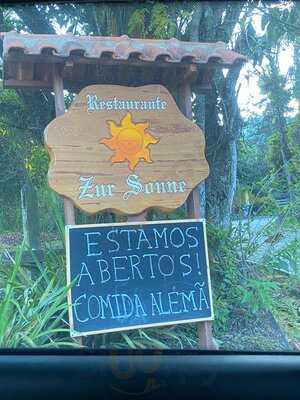 Restaurante
Zur Sonne
ESTAMOS
ABERTOS!
COMIDA ALEMÃ